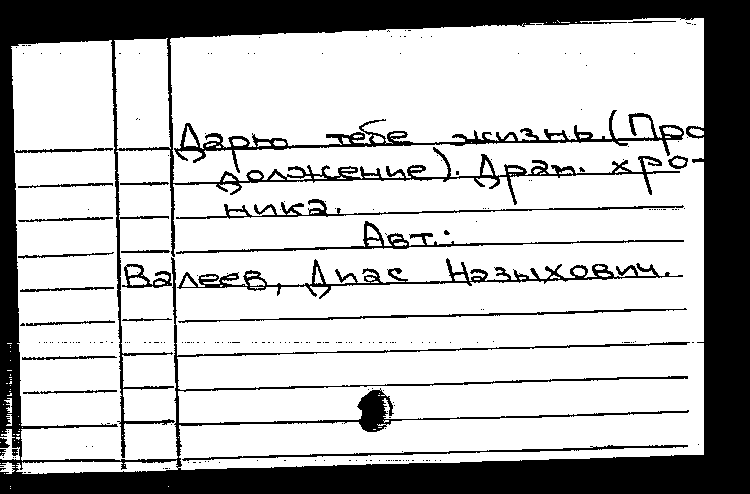 Дарю тебе жизнь. (Про
должение). Драм. хро-
ника.
Авт.:
Валеев, Диас Назыхович.